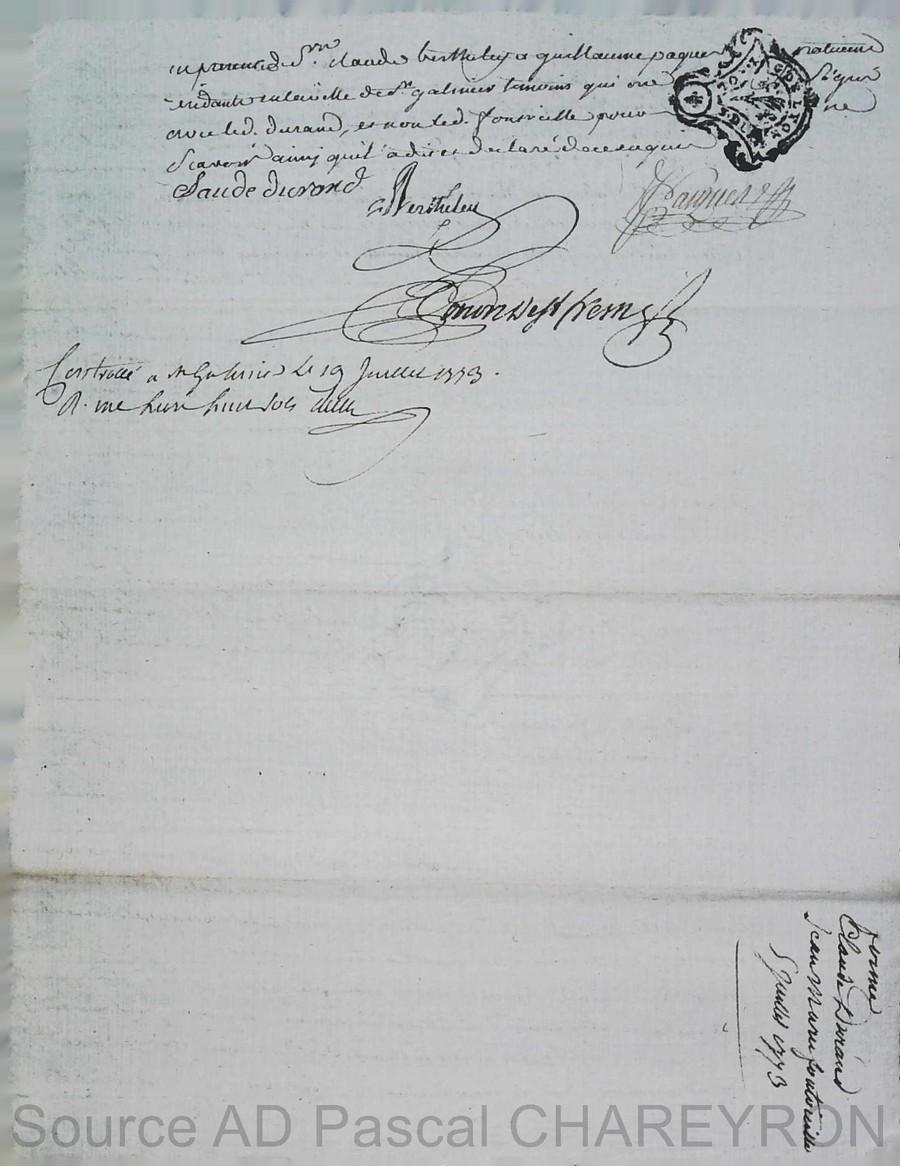 en presence de Sr. claude bertheley & guillaume paque praticiens
residants en la ville de St galmier temoins qui ont signé
avec led. durand, et non led. fontvielle pour ne
scavoir ainsi qu'il a dit et declaré de ce enquis
Claude durand
Bertheley
Controllé a St Galmier le 19 Juillet 1773.
R. une livre huit sols
ferme
Claude Durand
Jean Marie fontvielle
5 juillet 1773
Source AD Pascal CHAREYRON